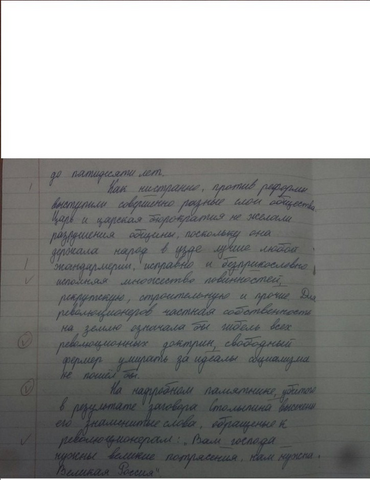 до пятидесяти лет.
Как нистранно, против реформы
выступили совершенно разные слои общества.
Царь и царская бюрократия не желали
разрушения общины, поскольку она
держала народ в узде лучше любой
жандармерии, исправно и безприкословно
исполняя множество повинностей,
рекрутскую, строительную и прочие. Для
революционеров частная собственность
на землю означала бы гибель всех
революционных доктрин, свободный
фермер умирать за идеалы социализма
не пошёл бы.
На надгробном памятнике, убитого
в результате заговора Столыпина высечены
его знаменитые слова, обращенные к
революционерам: „Вам господа
нужны великие потрясения, нам нужна
Великая Россия"